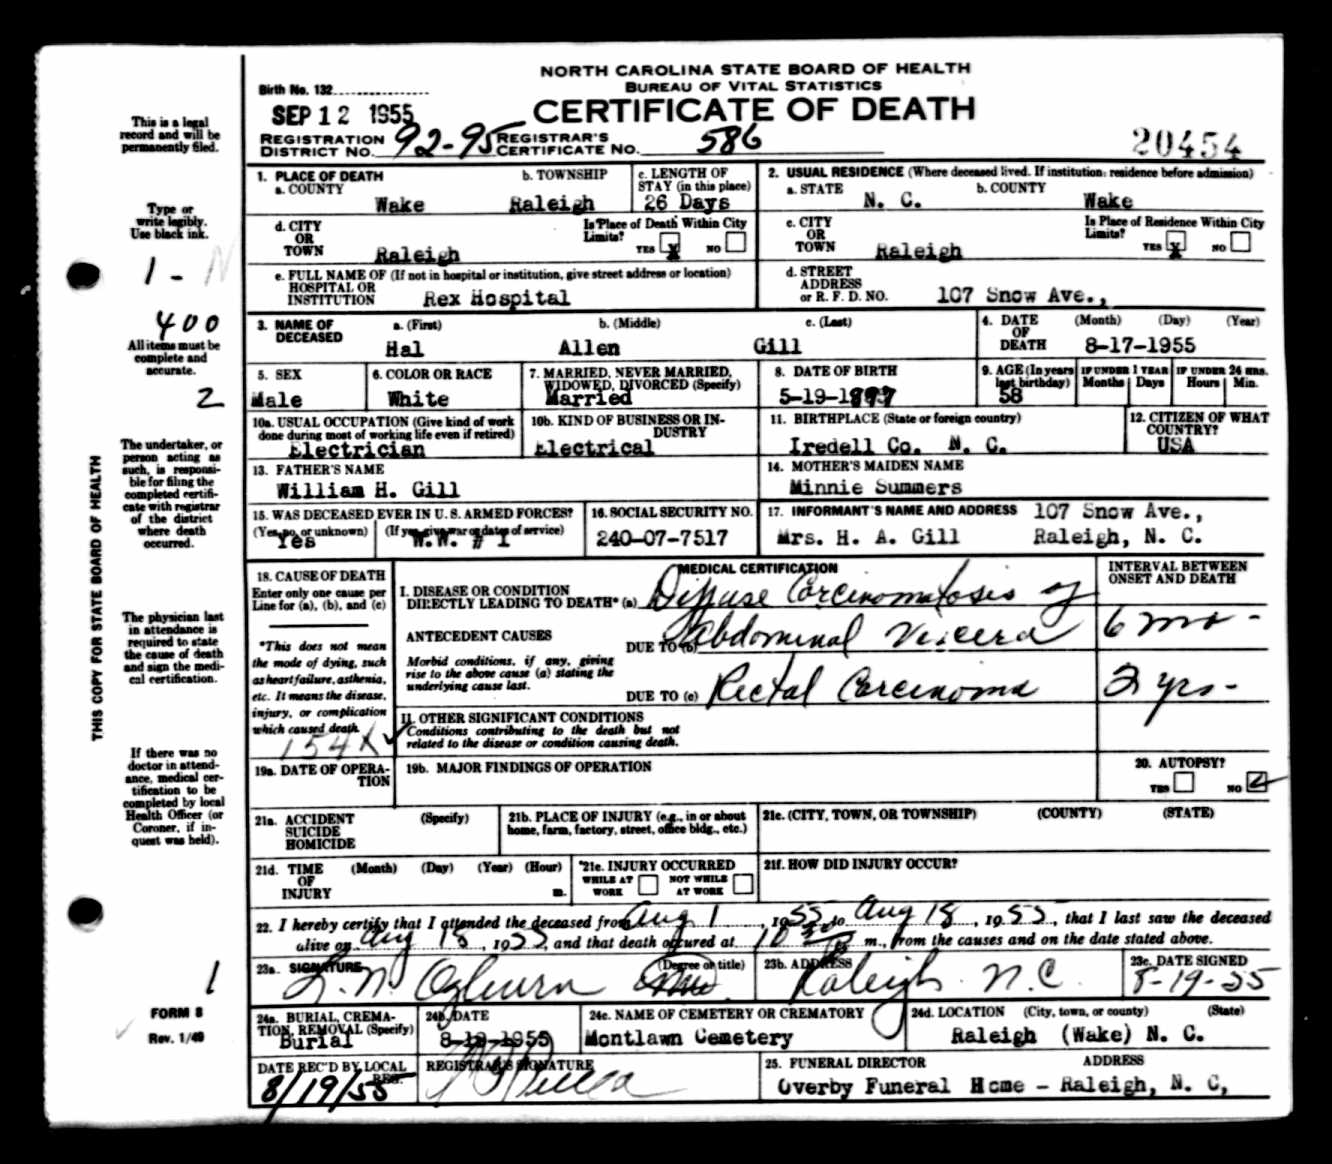 NORTH CAROLINA STATE BOARD OF HEALTH
BUREAU OF VITAL STATISTICS
CERTIFICATE OF DEATH
Birth No. 132
SEP 12 1955
REGISTRATION DISTRICT NO. 92-95 REGISTRAR'S CERTIFICATE NO. 586
20454
This is a legal
record and will be
permanently filed.
Type or
write legibly.
Use black ink.
1 - N
400
All items must be
complete and
accurate.
2
The undertaker, or
person acting as
such, is responsi-
ble for filing the
completed certifi-
cate with registrar
of the district
where death
occurred.
The physician last
in attendance is
required to state
the cause of death
and sign the medi-
cal certification.
If there was no
doctor in attend-
ance, medical cer-
tification to be
completed by local
Health Officer (or
Coroner, if in-
quest was held).
1
FORM 8
Rev. 1/49
THIS COPY FOR STATE BOARD OF HEALTH
1. PLACE OF DEATH
a. COUNTY Wake
b. TOWNSHIP Raleigh
c. LENGTH OF STAY (in this place) 26 Days
2. USUAL RESIDENCE (Where deceased lived. If institution: residence before admission)
a. STATE N. C.
b. COUNTY Wake
d. CITY OR TOWN Raleigh
Is Place of Death Within City Limits? YES X NO
c. CITY OR TOWN Raleigh
Is Place of Residence Within City Limits? YES X NO
e. FULL NAME OF (If not in hospital or institution, give street address or location)
HOSPITAL OR INSTITUTION Rex Hospital
d. STREET ADDRESS or R. F. D. NO. 107 Snow Ave.,
3. NAME OF DECEASED
a. (First) Hal
b. (Middle) Allen
c. (Last) Gill
4. DATE OF DEATH (Month) (Day) (Year) 8-17-1955
5. SEX Male
6. COLOR OR RACE White
7. MARRIED, NEVER MARRIED, WIDOWED, DIVORCED (Specify) Married
8. DATE OF BIRTH 5-19-1897
9. AGE (In years last birthday) 58
IF UNDER 1 YEAR Months Days
IF UNDER 24 HRS. Hours Min.
10a. USUAL OCCUPATION (Give kind of work done during most of working life even if retired) Electrician
10b. KIND OF BUSINESS OR INDUSTRY Electrical
11. BIRTHPLACE (State or foreign country) Iredell Co. N. C.
12. CITIZEN OF WHAT COUNTRY? USA
13. FATHER'S NAME William H. Gill
14. MOTHER'S MAIDEN NAME Minnie Summers
15. WAS DECEASED EVER IN U. S. ARMED FORCES?
(Yes, no, or unknown) Yes
(If yes, give war or dates of service) W.W. # 1
16. SOCIAL SECURITY NO. 240-07-7517
17. INFORMANT'S NAME AND ADDRESS 107 Snow Ave.,
Mrs. H. A. Gill Raleigh, N. C.
18. CAUSE OF DEATH
Enter only one cause per
Line for (a), (b), and (c)
*This does not mean
the mode of dying, such
as heart failure, asthenia,
etc. It means the disease,
injury, or complication
which caused death.
154X
MEDICAL CERTIFICATION
INTERVAL BETWEEN ONSET AND DEATH
I. DISEASE OR CONDITION
DIRECTLY LEADING TO DEATH* (a) Diffuse Carcinomatosis of
ANTECEDENT CAUSES
DUE TO (b) Abdominal Viscera 6 mo -
Morbid conditions, if any, giving
rise to the above cause (a) stating the
underlying cause last.
DUE TO (c) Rectal Carcinoma 2 yrs -
II. OTHER SIGNIFICANT CONDITIONS
Conditions contributing to the death but not
related to the disease or condition causing death.
19a. DATE OF OPERATION
19b. MAJOR FINDINGS OF OPERATION
20. AUTOPSY? YES NO
21a. ACCIDENT SUICIDE HOMICIDE (Specify)
21b. PLACE OF INJURY (e.g., in or about home, farm, factory, street, office bldg., etc.)
21c. (CITY, TOWN, OR TOWNSHIP) (COUNTY) (STATE)
21d. TIME OF INJURY (Month) (Day) (Year) (Hour) m.
21e. INJURY OCCURRED WHILE AT WORK NOT WHILE AT WORK
21f. HOW DID INJURY OCCUR?
22. I hereby certify that I attended the deceased from Aug 1, 1955 to Aug 18, 1955, that I last saw the deceased
alive on Aug 18, 1955, and that death occured at 10 m., from the causes and on the date stated above.
23a. SIGNATURE (Degree or title) L. N. Ogburn MD
23b. ADDRESS Raleigh N.C.
23c. DATE SIGNED 8-19-55
24a. BURIAL, CREMATION, REMOVAL (Specify) Burial
24b. DATE 8-19-1955
24c. NAME OF CEMETERY OR CREMATORY Montlawn Cemetery
24d. LOCATION (City, town, or county) (State) Raleigh (Wake) N. C.
DATE REC'D BY LOCAL REG. 8/19/55
REGISTRAR'S SIGNATURE
25. FUNERAL DIRECTOR ADDRESS
Overby Funeral Home - Raleigh, N. C,